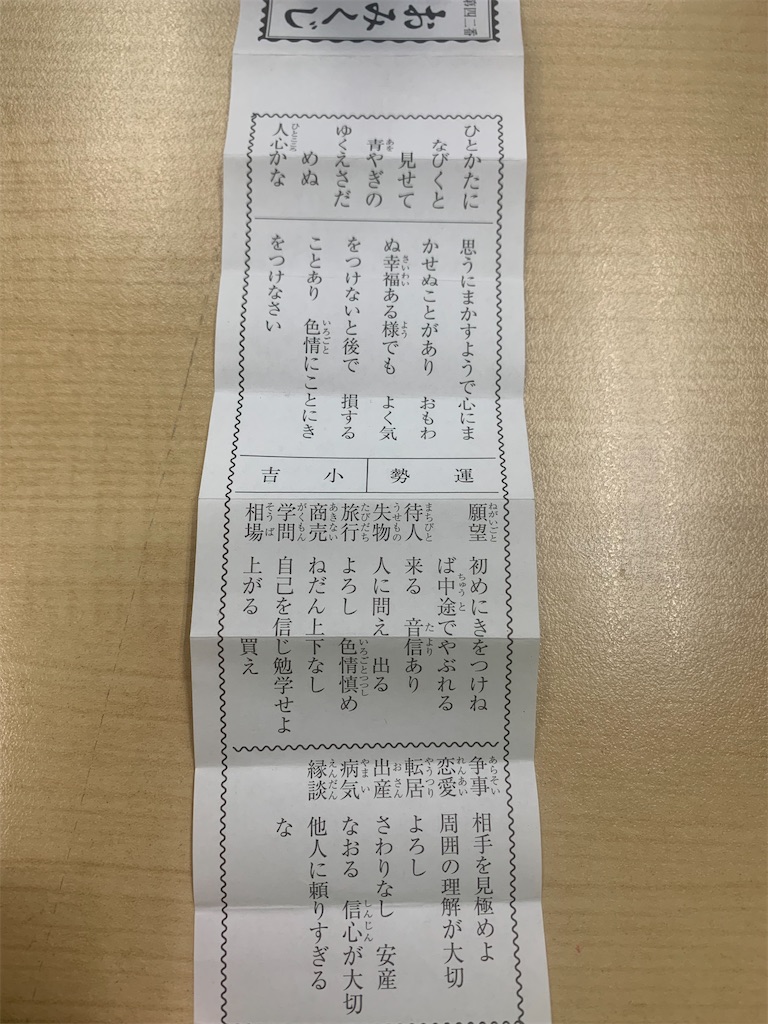 第四二番
おみくじ
ひとかたに
なびくと
見せて
青やぎの
ゆくえさだ
めぬ
人心かな
思うにまかすようで心にま
かせぬことがあり　おもわ
ぬ幸福ある様でも　よく気
をつけないと後で　損する
ことあり　色情にことにき
をつけなさい
運勢
小吉
願望　初めにきをつけね
ば中途でやぶれる
待人　来る　音信あり
失物　人に問え　出る
旅行　よろし　色情慎め
商売　ねだん上下なし
学問　自己を信じ勉学せよ
相場　上がる　買え
争事　相手を見極めよ
恋愛　周囲の理解が大切
転居　よろし
出産　さわりなし　安産
病気　なおる　信心が大切
縁談　他人に頼りすぎる
な